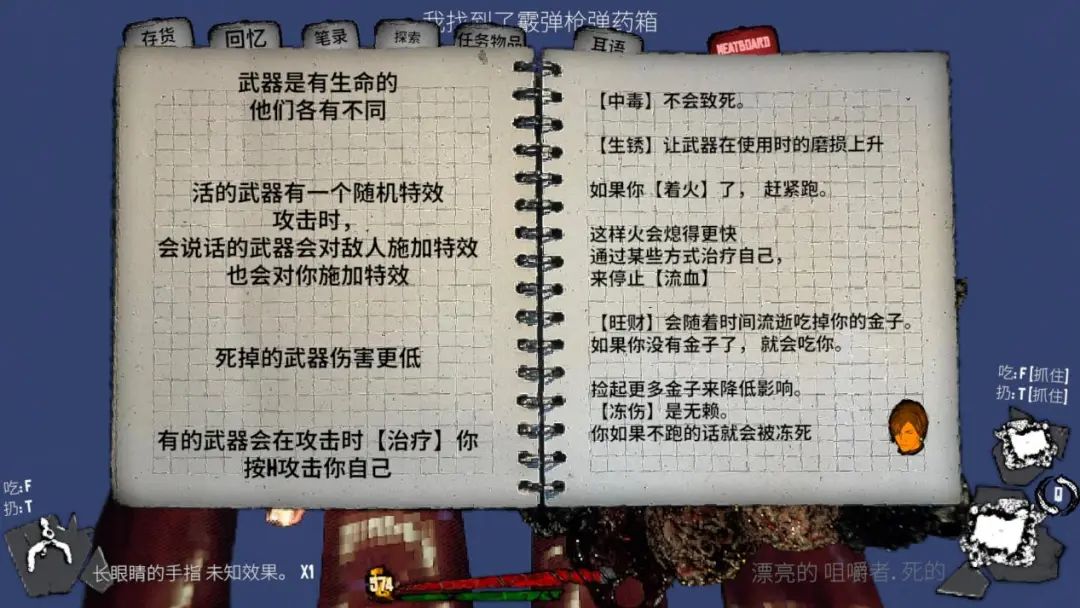 我找到了霰弹枪弹药箱
存货
回忆
笔录
探索
任务物品
耳语
MEATBOARD
武器是有生命的
他们各有不同
活的武器有一个随机特效
攻击时，
会说话的武器会对敌人施加特效
也会对你施加特效
死掉的武器伤害更低
有的武器会在攻击时【治疗】你
按H攻击你自己
【中毒】不会致死。
【生锈】让武器在使用时的磨损上升
如果你【着火】了， 赶紧跑。
这样火会熄得更快
通过某些方式治疗自己，
来停止【流血】
【旺财】会随着时间流逝吃掉你的金子。
如果你没有金子了， 就会吃你。
捡起更多金子来降低影响。
【冻伤】是无赖。
你如果不跑的话就会被冻死
吃:F[抓住]
扔:T[抓住]
Q
吃:F
扔:T
长眼睛的手指 未知效果。 X1
574
漂亮的 咀嚼者. 死的